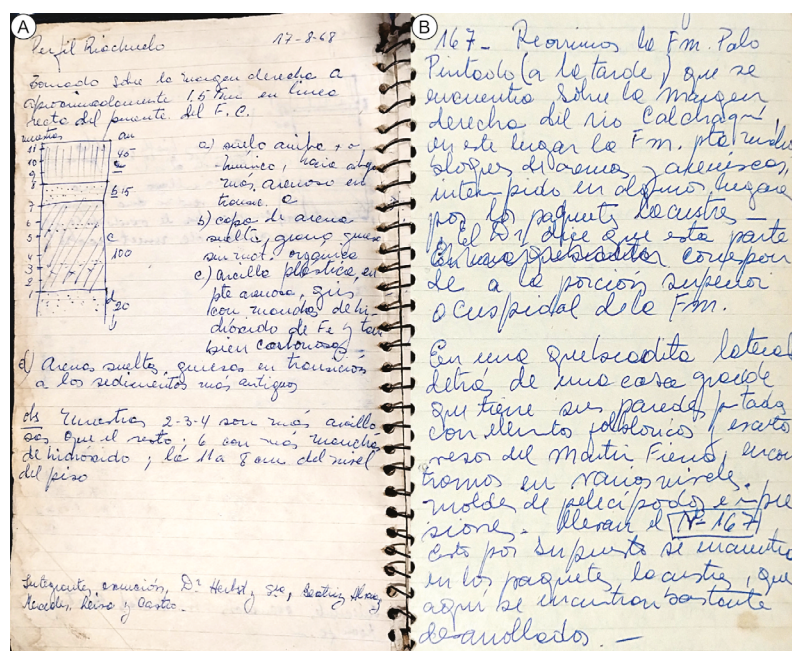 A
Perfil Riachuelo 17-8-68
Tomado sobre la margen derecha a
aproximadamente 1.5 Km en linea
recta del puente del F.C.
muestras cm
11
10
9
8
7
6
5
4
3
2
1
a 45
b 15
c
100
d
20
a) suelo areno
húmico, hacia abajo
más arenoso en
transic. a
b) capa de arena
suelta, grano grueso
sin mat. orgánica
c) arcilla plástica, en
pte arenosa, gris
con manchas de hi-
dróxido de Fe y tam
bien carbonosas
d) Arenas sueltas, gruesas en transición
a los sedimentos más antiguos
Muestras 2-3-4 son más arcillo
sas que el resto; 6 con más manchas
de hidróxido; la 11 a 8 cm del nivel
del piso
Integrantes comisión, Dr Herbst y Sra, Beatriz
Mercedes, y Castro.
B
167- Recorrimos la Fm. Palo
Pintado (a la tarde) que se
encuentra sobre la margen
derecha del rio Calchaquí,
en este lugar la Fm.
bloques de arenas y areniscas,
interrumpido en algunos lugares
por los paquetes lacustres -
El Dr dice que esta parte
correspon
de a la porción superior
o cuspidal de la Fm.
En una quebradita lateral
detrás de una casa grande
que tiene sus paredes pintadas
con elementos folkloricos y escrito
versos del Martin Fierro, encon
tramos en varios niveles
moldes de pelecípodos e impre
siones. Llevan el Nº 167
Esto por supuesto se encuentra
en los paquetes lacustres, que
aquí se encuentran bastante
desarrollados. -